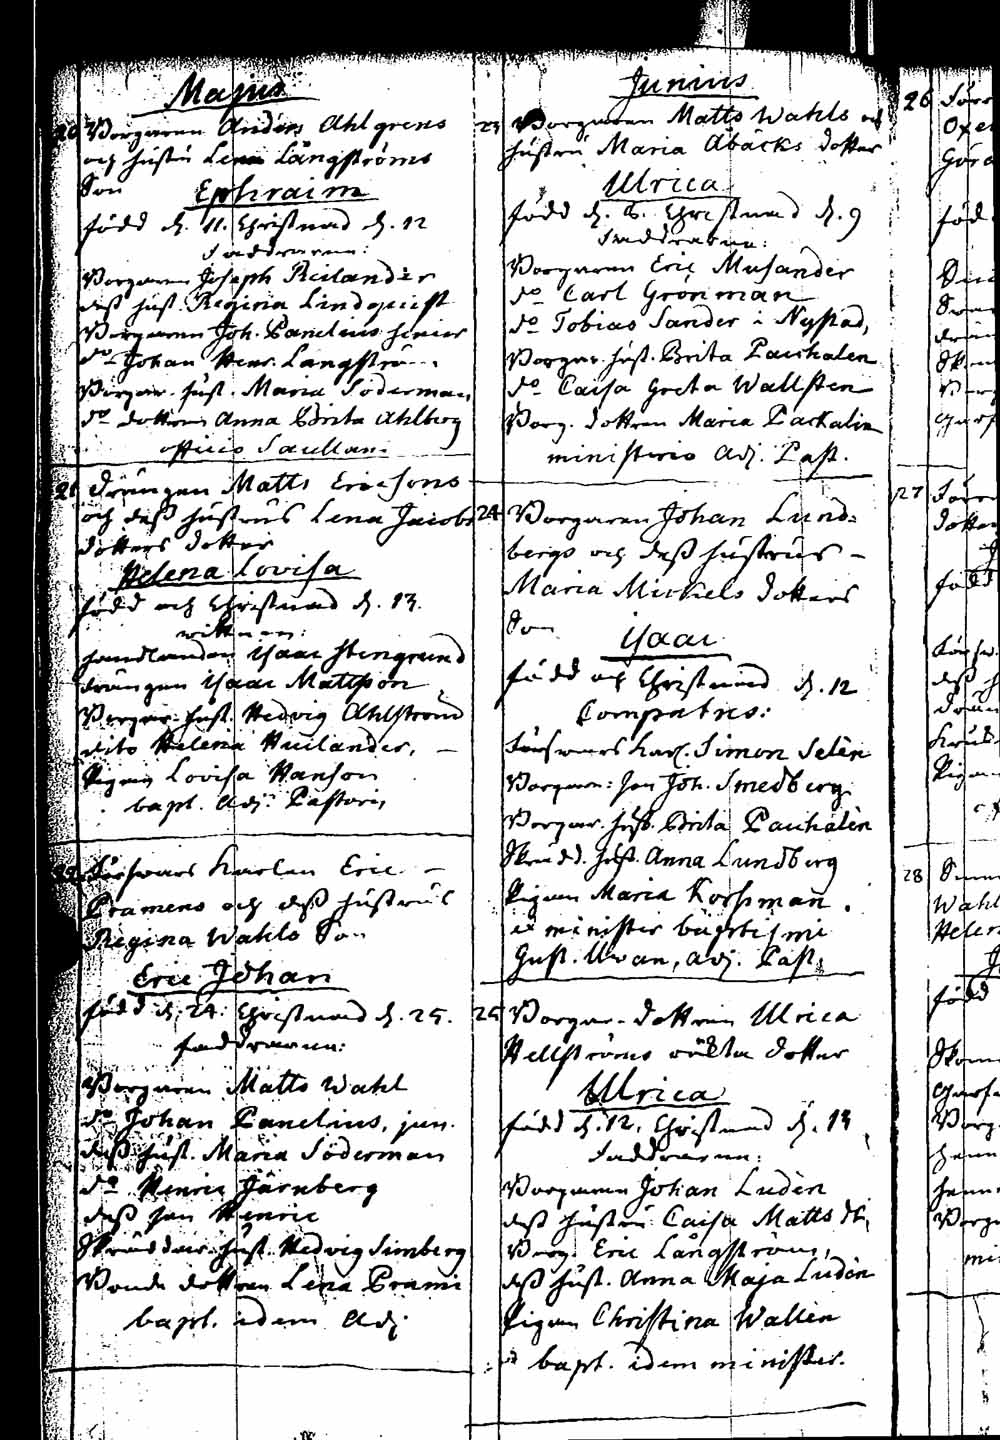 Majus
20 Borgaren Anders Ahlgrens
och hustru Lena Långströms
Son Ephraim
född d. 11. Christnad d. 12
Faddrarne:
Borgaren Joseph Reilander
dess hust. Regina Lindquist
Borgaren Joh. Panelius senior
do Johan Henr. Langström
Borgar. hust. Maria Söderman
do dottren Anna Brita Ahlberg
21 Drängen Matts Ericsons
och dess hustrus Lena Jacobs
dotters dotter
Helena Lovisa
född och Christnad d. 13.
wittnen:
handlanden Isaac Stengrund
drängen Isaac Mattson
Borgar. hust. Hedvig Ahlström
dito Helena Huilander,
Pigan Lovisa Hanson
bapt. Adj. Pastoris
22 Försvars Karlen Eric
Pramens och dess hustrus
Regina Wahls Son
Eric Johan
född d. 24. Christnad d. 25.
faddrarne:
Borgaren Matts Wahl
do Johan Panelius, jun.
dess hust. Maria Söderman
do Henric Järnberg
dess son Henric
Skräddar hust. Hedvig Simberg
Bonde dottren Lena Prami
bapt. idem Adj.
Junius
23 Borgaren Matts Wahls och
hustru Maria Abäcks dotter
Ulrica
född d. 8. Christnad d. 9
Faddrarne:
Borgaren Eric Musander
do Carl Grönman
do Tobias Sander i Nystad,
Borgar. hust. Brita Pauhalen
do Caisa Greta Wallsten
Borg. dottren Maria Parkalin
ministerio Adj. Past.
24 Borgaren Johan Lund-
bergs och dess hustrus
Maria Mickels dotters
Son Isaac
född och Christnad d. 12
Compatres:
Försvars Karl. Simon Selèn
Borgare: son Joh. Smedberg
Borgar. hust. Brita Pauhalèn
Skrädd. hust. Anna Lundberg
Pigan Maria Korsman.
minister baptismi
Gust. Uvan, adj. Past.
25 Borgar-dottren Ulrica
Hellströms oäkta dotter
Ulrica
född d. 12. Christnad d. 13
Faddrarne:
Borgaren Johan Ludèn
dess hustru Caisa Matts dr,
Borg. Eric Långström,
dess hust. Anna Maja Ludèn
Pigan Christina Wallèn
bapt. idem minister.
26
född
27
dotter
född
28
Wahl
född